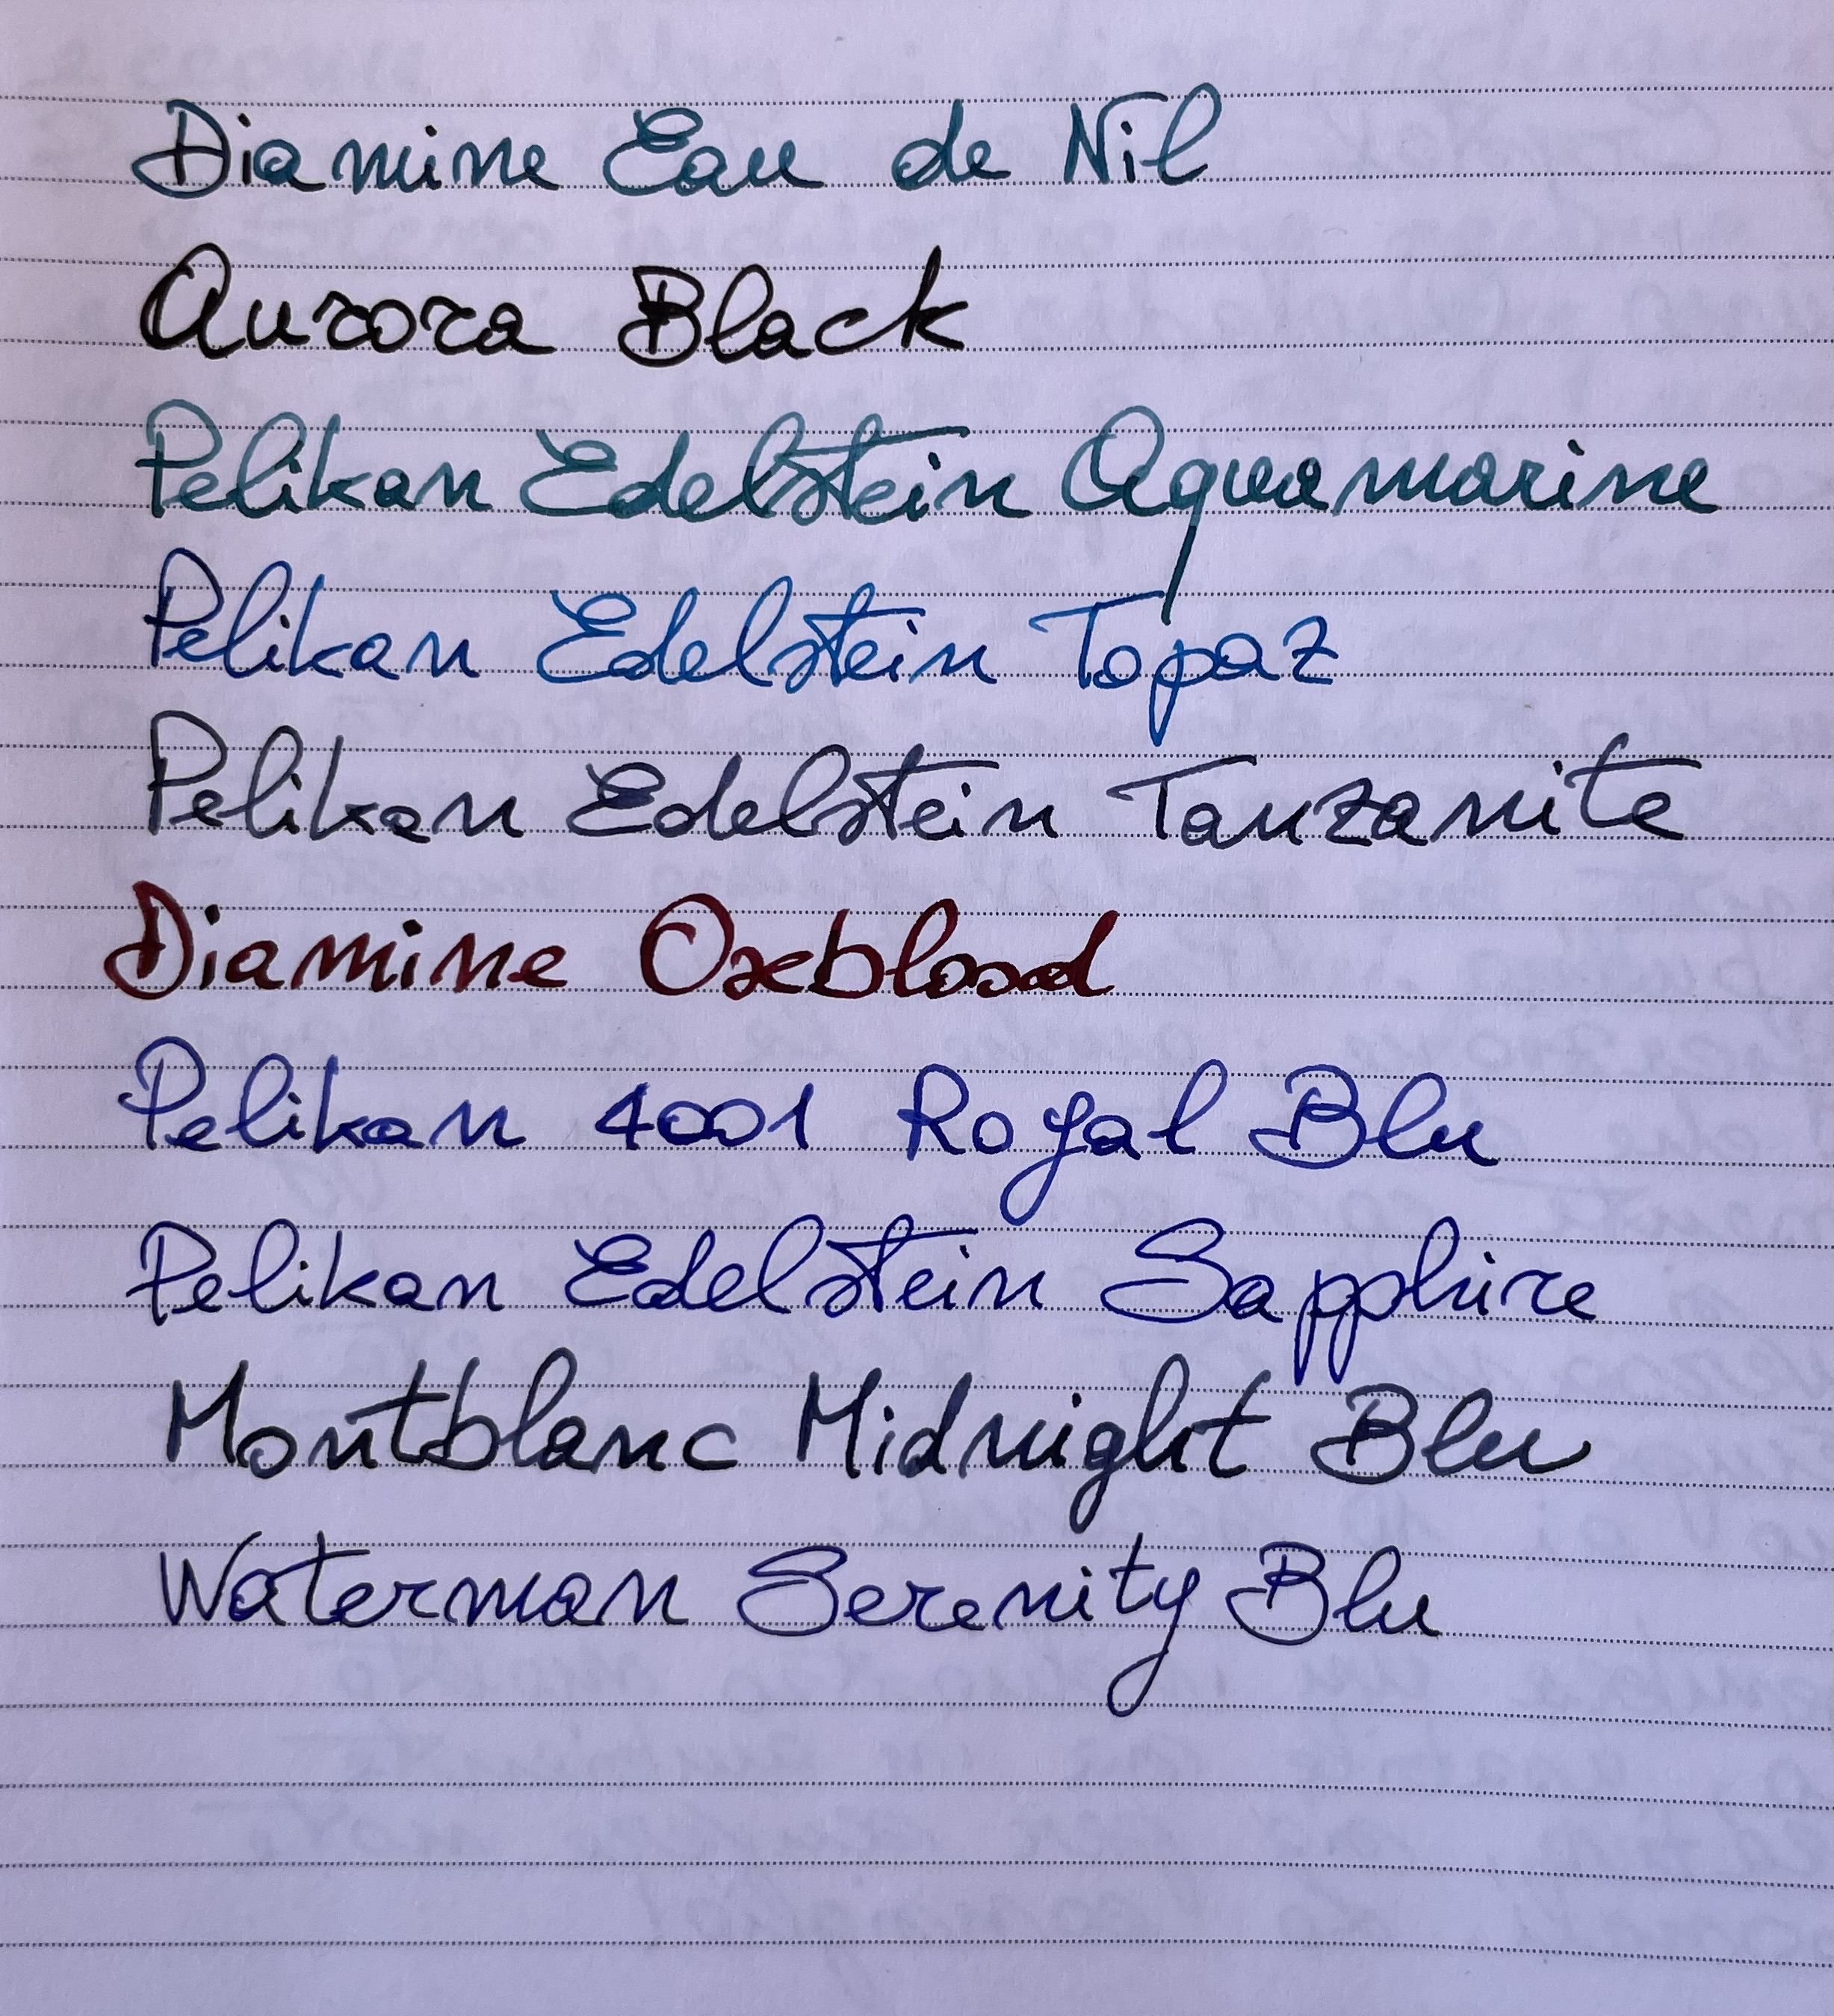 Diamine Eau de Nil
Aurora Black
Pelikan Edelstein Aquamarine
Pelikan Edelstein Topaz
Pelikan Edelstein Tanzanite
Diamine Oxblood
Pelikan 4001 Royal Blu
Pelikan Edelstein Sapphire
Montblanc Midnight Blu
Waterman Serenity Blu